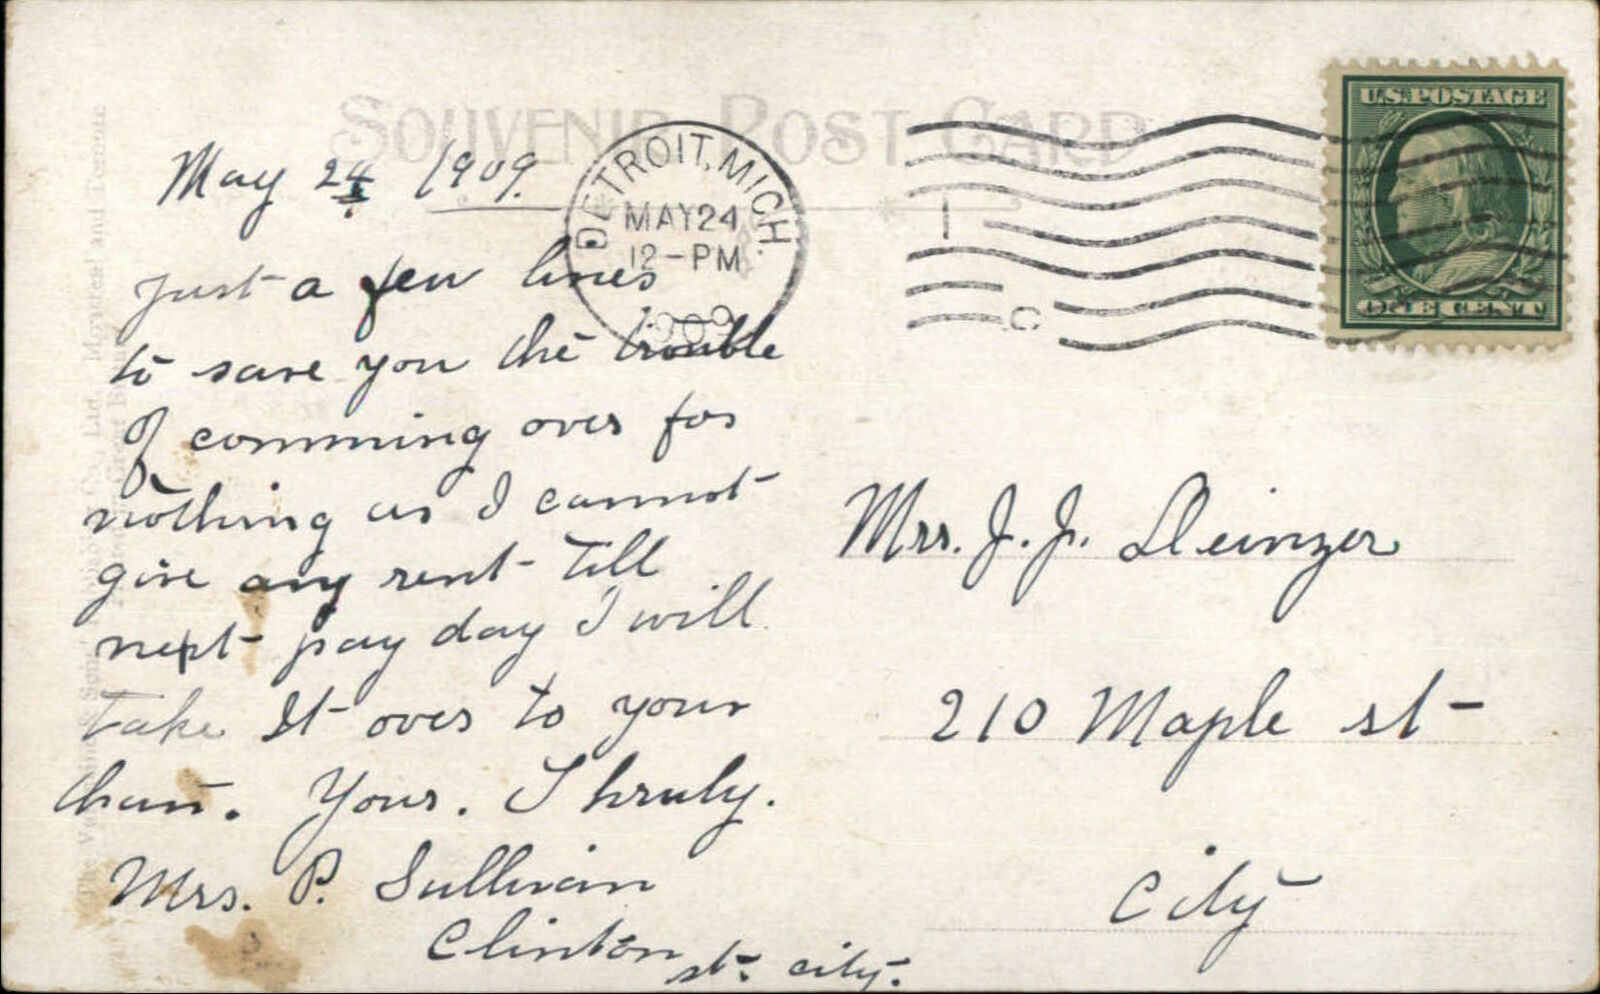 SOUVENIR POST CARD
U.S. POSTAGE
ONE CENT
DETROIT, MICH.
MAY 24
12-PM
1909
1
C
May 24 1909.
just a few lines
to save you the trouble
of comming over for
nothing as I cannot
give any rent till
next pay day I will
take It over to your
. Yours. Truly.
Mrs. P. Sullivan
Clinton st. city.
Mrs. J. J. Deinzer
210 Maple st
City
Montreal and Toronto